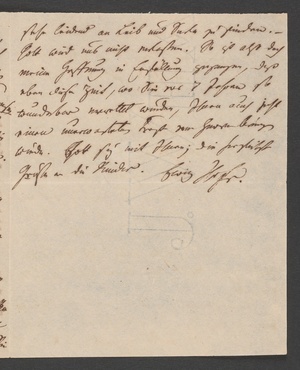 sehr leidend an Leib und Seele zu finden. –
Gott wird uns nicht verlassen. So ist also doch
meine Hoffnung in Erfüllung gegangen, daß
eben diese Zeit, wo Sie vor 7 Jahren so
wunderbar errettet wurden, Ihnen auch jetzt
einen Trost
werde. Gott sey mit Ihnen; die herzlichsten
Grüße an die Kinder. Ewig Ihr